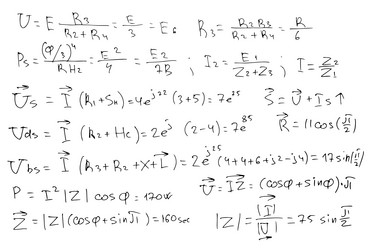 U⃗ = E R₃/(R₂+R₄) = E/3 = E₆   R₃ = R₂R₃/(R₂+R₄) = R/6
P₅ = (φ/3)⁴/RHz = E²/4 = E₂/7B; I₂ = E₁/(Z₂+Z₃); I = Z₂/Z₁
U⃗s = I⃗ (R₁+Sₙ) = 4e^j22 (3+5) = 7e²⁵   S⃗ = U⃗ + I s↑
Uds = I⃗ (R₂+Hc) = 2e^j (2-4) = 7e⁸⁵   R⃗ = 11cos(π/2)
Ubs = I⃗ (R₃+R₂+X+L⃗) = 2e^j25 (4+4+6+j2-j4) = 17sin(π/2)
P = I² |Z| cosφ = 170w   U⃗ = I⃗Z = (cosφ + sinφ)·π
Z⃗ = |Z| (cosφ + sinπ) = 160sec   |Z| = |I⃗|/|U⃗| = 75 sin π/2